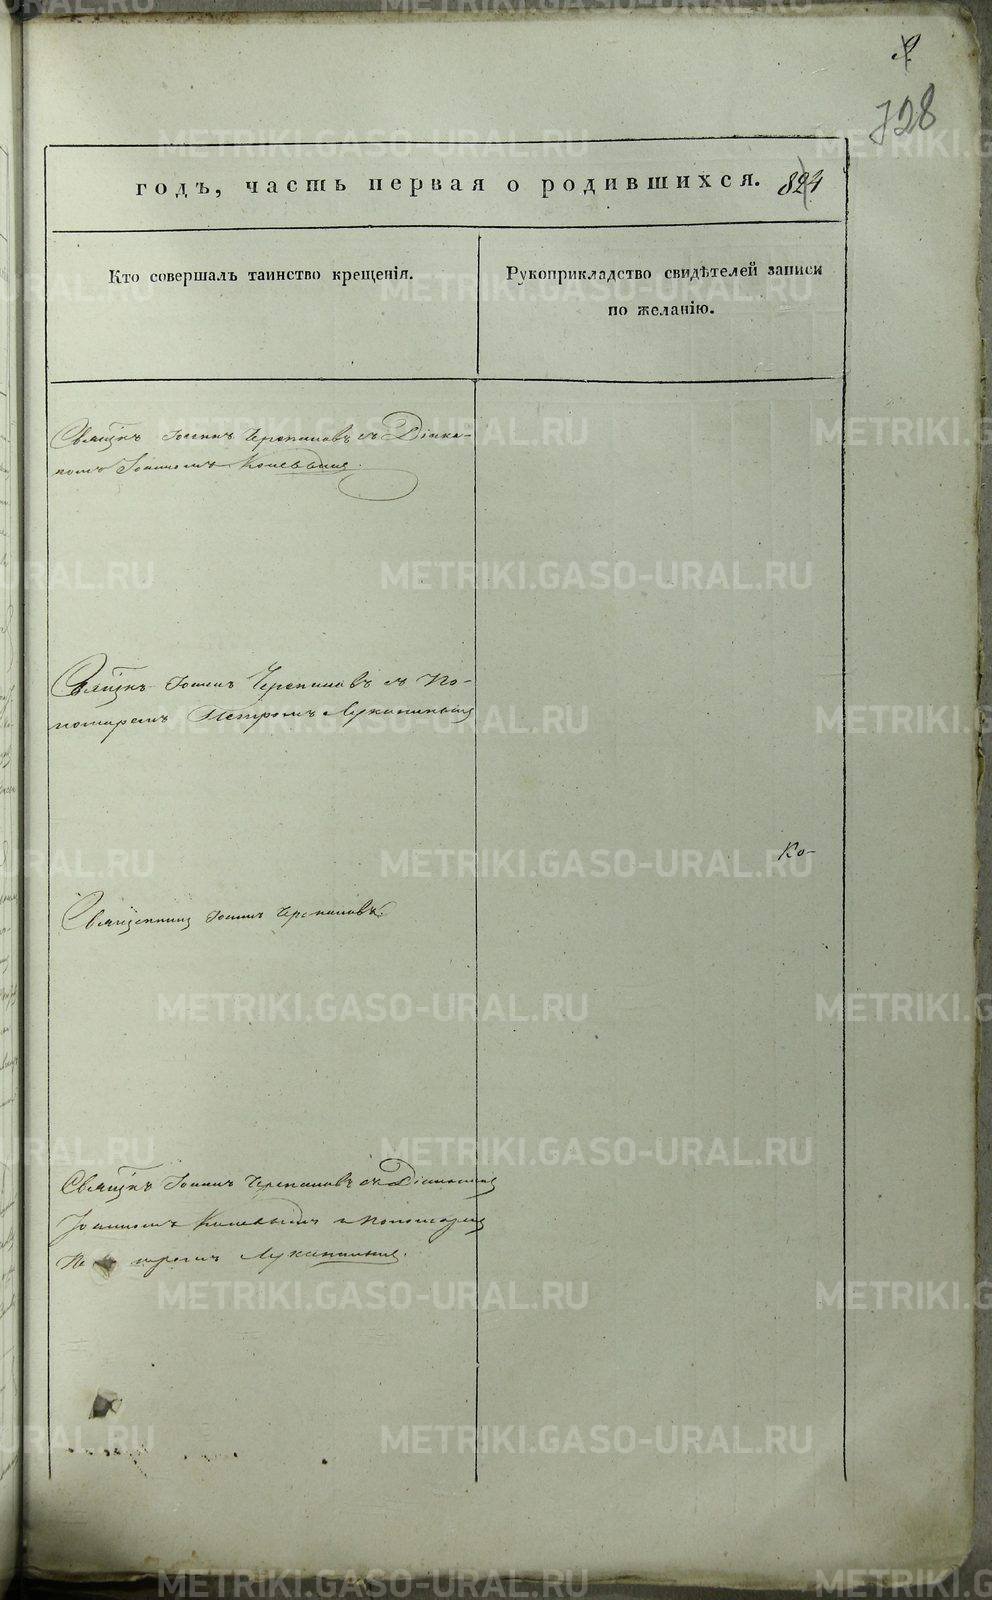 728
годъ, часть первая о родившихся. 824
Кто совершалъ таинство крещенія.
Рукоприкладство свидѣтелей записи
по желанію.
Свящ҃къ Іоаннъ Черепановъ съ Діако-
номъ Іоанномъ Коневымъ.
Свящ҃къ Іоаннъ Черепановъ съ По-
номаремъ Петромъ Луканинымъ
Ко-
Священникъ Іоаннъ Черепановъ.
Свящ҃къ Іоаннъ Черепановъ съ Діакономъ
Іоанномъ и пономаремъ
Петромъ Луканинымъ.
METRIKI.GASO-URAL.RU